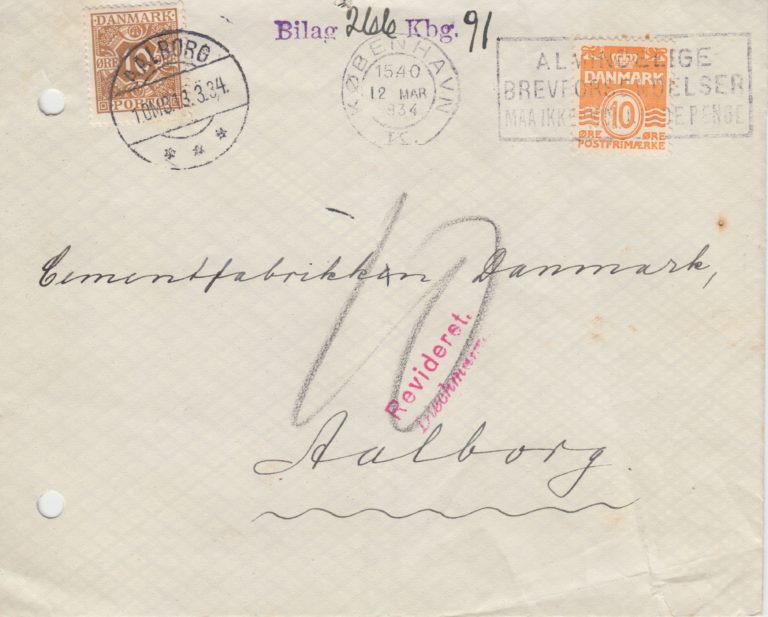 DANMARK
ØRE 10 ØRE
PORTO
AALBORG
3.3.34.
Bilag Kbg. 91
KØBENHAVN
1540
12 MAR
934
K.
ALMINDELIGE
BREVFORSENDELSER
MAA IKKE PENGE
DANMARK
ØRE 10 ØRE
POSTFRIMÆRKE
Cementfabrikken Danmark,
10
Revideret.
Aalborg.